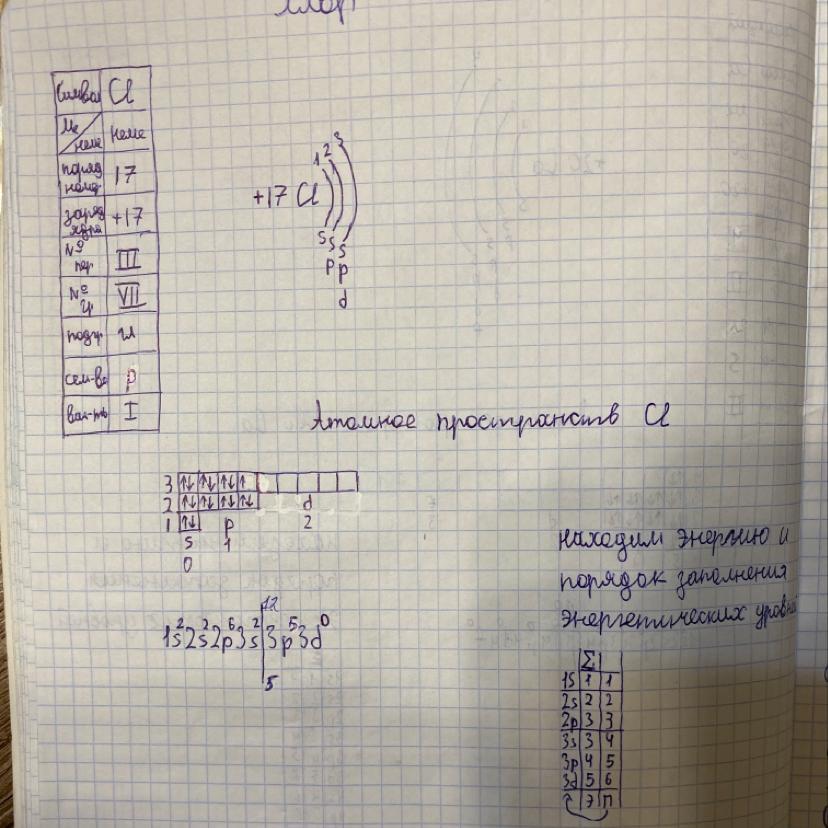 Хлор
Символ Cl
Ме/неме неме
поряд номер 17
заряд ядра +17
№ пер III
№ гр VII
подгр гл
сем-во p
вал-ть I
1 2 3
+17 Cl )))
s s s
p p
d
Атомное пространств Cl
3 ↑↓ ↑↓ ↑↓ ↑
2 ↑↓ ↑↓ ↑↓ ↑↓ d
1 ↑↓ p 2
s 1
0
12
1s² 2s² 2p⁶ 3s² 3p⁵ 3d⁰
5
находим энергию и
порядок заполнения
энергетических уровней
Σ
1s 1 1
2s 2 2
2p 3 3
3s 3 4
3p 4 5
3d 5 6
Э П